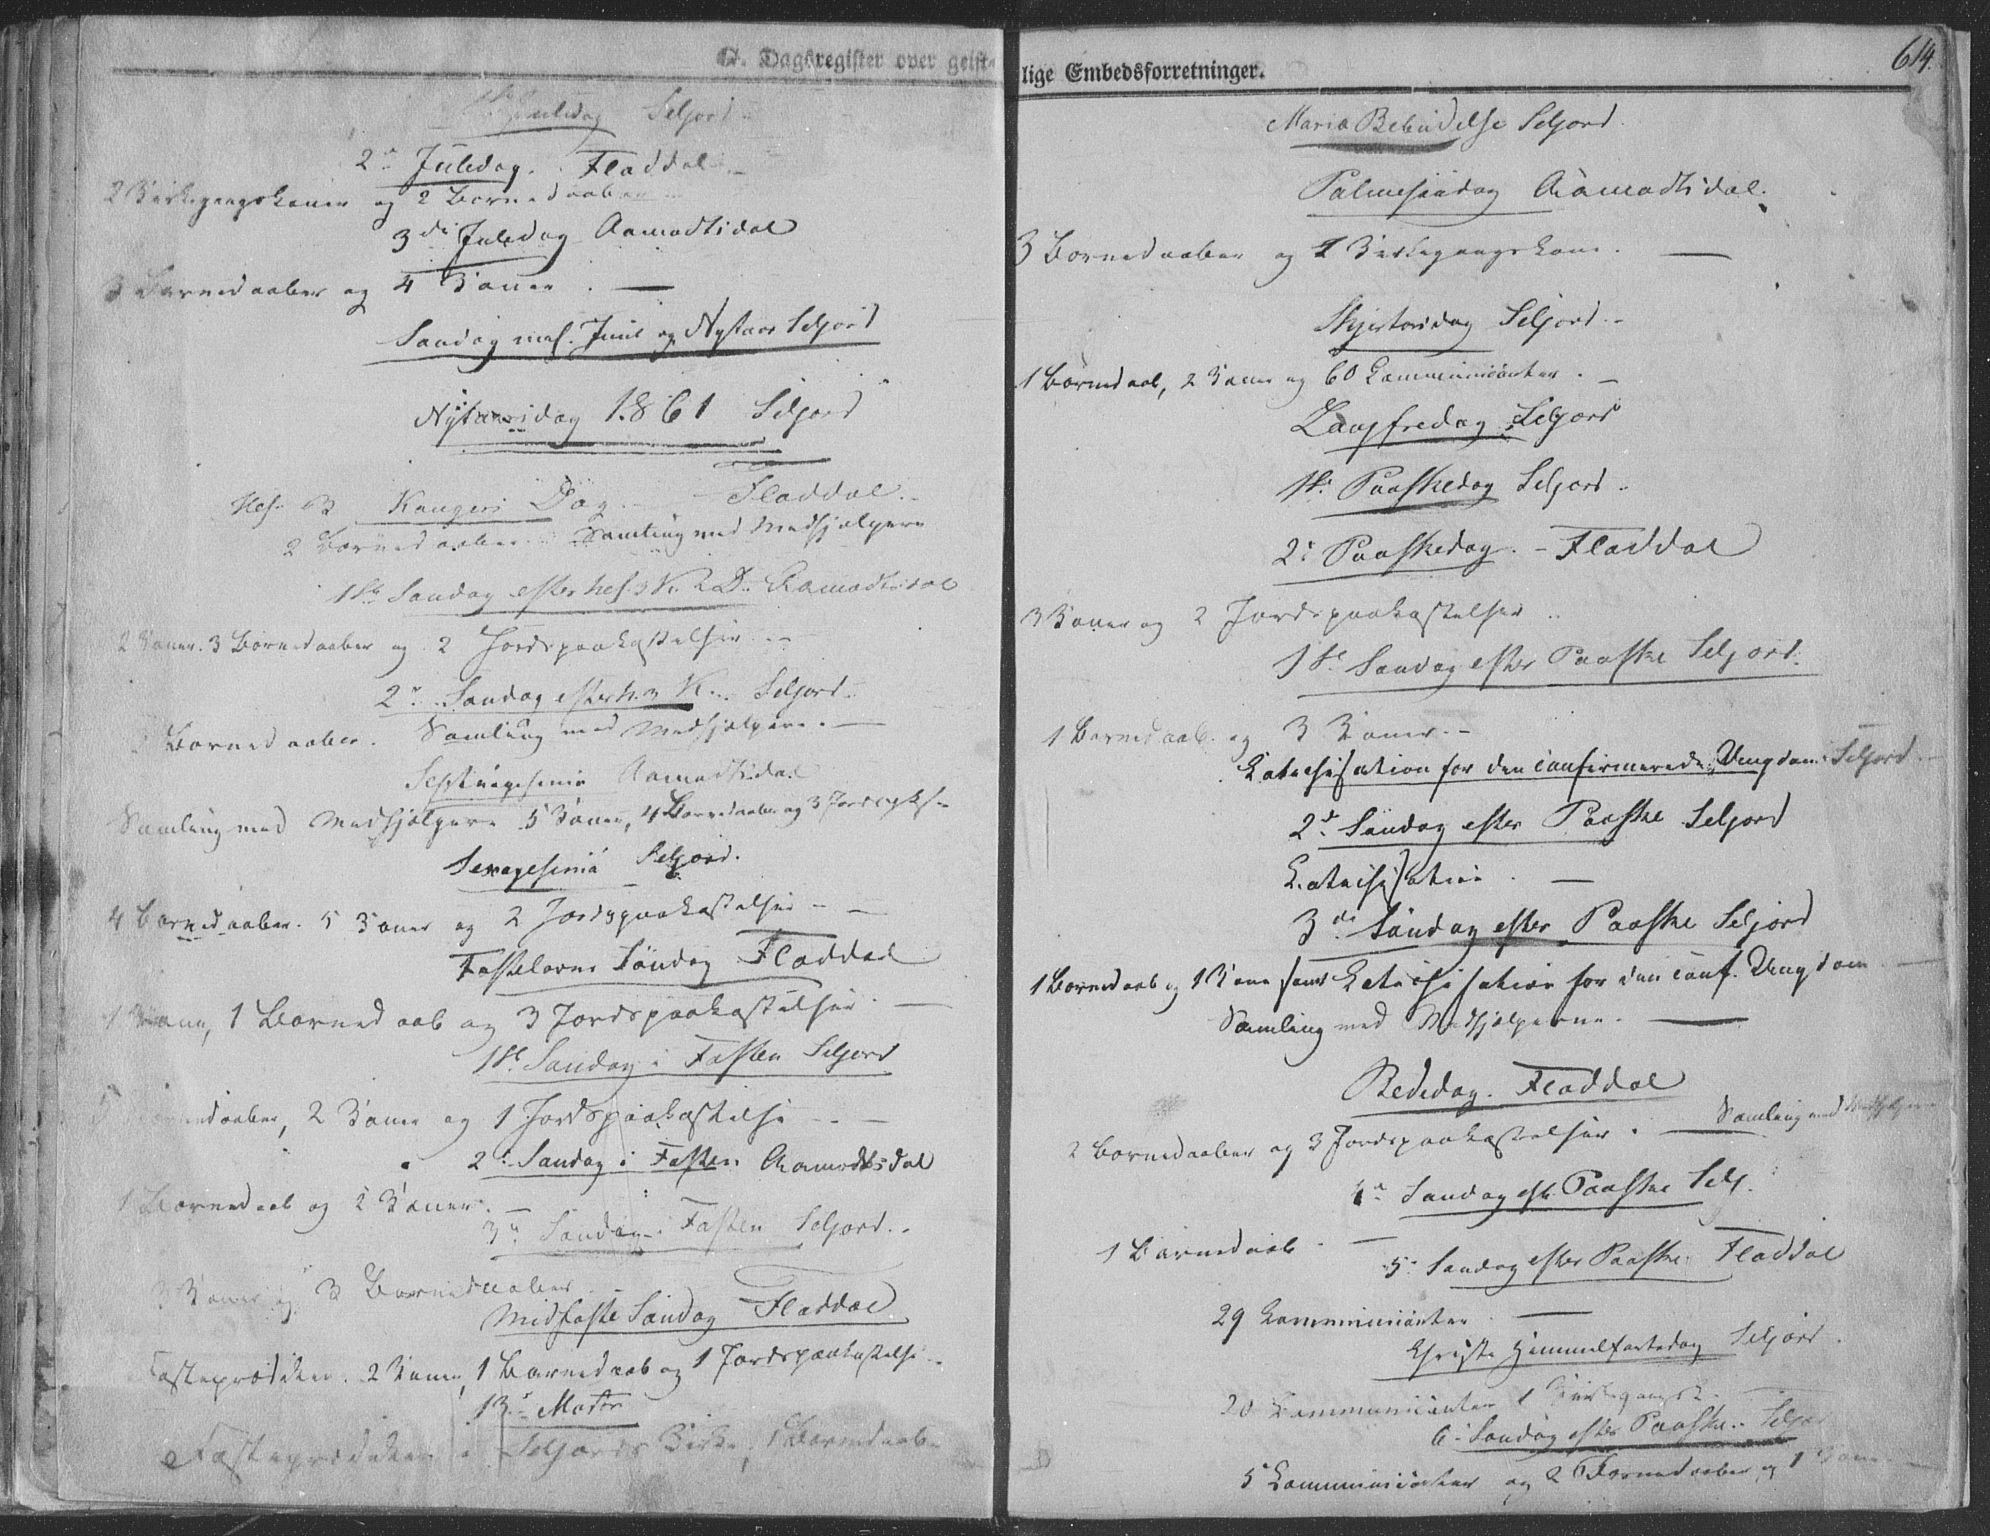 D. Dagsregister over geist-
Juledag Seljord
2n Juledag. Fladdal
2 Kirkegangskoner og 2 Barnedaaber
3die Juledag Aamodtsdal
3 Barnedaaber og 4 Koner. —
Søndag mel. Juul og Nytaar Seljord
Nytaarsdag 1861 Seljord
Hel. 3 Kongers Dag. Fladdal.
2 Barnedaaber. Samling med Medhjælpere
1ste Søndag efter hel. 3 K. D. Aamodtsdal
2 Koner. 3 Barnedaaber og 2 Jordspaakastelser. —
2n Søndag efter h. 3 K. Seljord.
Barnedaaber. Samling med Medhjælpere. —
Septuagesima Aamodtsdal
Samling med Medhjælpere 5 Koner, 4 Barnedaaber og 3 Jordspks.
Sexagesima Seljord.
4 Barnedaaber. 5 Koner og 2 Jordspaakastelser —
Fastelavns Søndag Fladdal
1 Kone, 1 Barnedaab og 3 Jordspaakastelser. —
1ste Søndag i Fasten Seljord
5 Barnedaaber, 2 Koner og 1 Jordspaakastelse —
2n Søndag i Fasten Aamodtsdal
1 Barnedaab og 2 Koner. —
3n Søndag i Fasten Seljord.
3 Koner og 3 Barnedaaber.
Midfaste Søndag Fladdal
Fasteprædiken. 2 Koner, 1 Barnedaab og 1 Jordspaakastelse
13n Marts
Fasteprædiken i Seljords Kirke, 1 Barnedaab
lige Embedsforretninger.
614.
Maria Bebudelse Seljord.
Palmesøndag Aamodtsdal.
3 Barnedaaber og 1 Kirkegangskone. —
Skjertorsdag Seljord.
1 Barnedaab, 2 Koner og 60 Communicanter. —
Langfredag Seljord
1ste Paaskedag Seljord.
2n Paaskedag. — Fladdal
3 Koner og 2 Jordspaakastelser
1ste Søndag efter Paaske Seljord.
1 Barnedaab og 3 Koner. —
Catechisation for den confirmerede Ungdom Seljord
2n Søndag efter Paaske Seljord
Catechisation. —
3die Søndag efter Paaske Seljord
1 Barnedaab og 1 Kone samt Catechisation for den conf. Ungdom
Samling med Medhjælperne. —
Bededag. Fladdal
2 Barnedaaber og 3 Jordspaakastelser. — Samling med Medhjælperne
4n Søndag eft. Paaske Selj.
1 Barnedaab. —
5n Søndag efter Paaske Fladdal
29 Communicanter. —
Christi Himmelfartsdag Seljord.
20 Communicanter 1 Kirkegangsk.
6n Søndag efter Paaske. Seljord
5 Communicanter og 2 Barnedaaber og 1 Kone